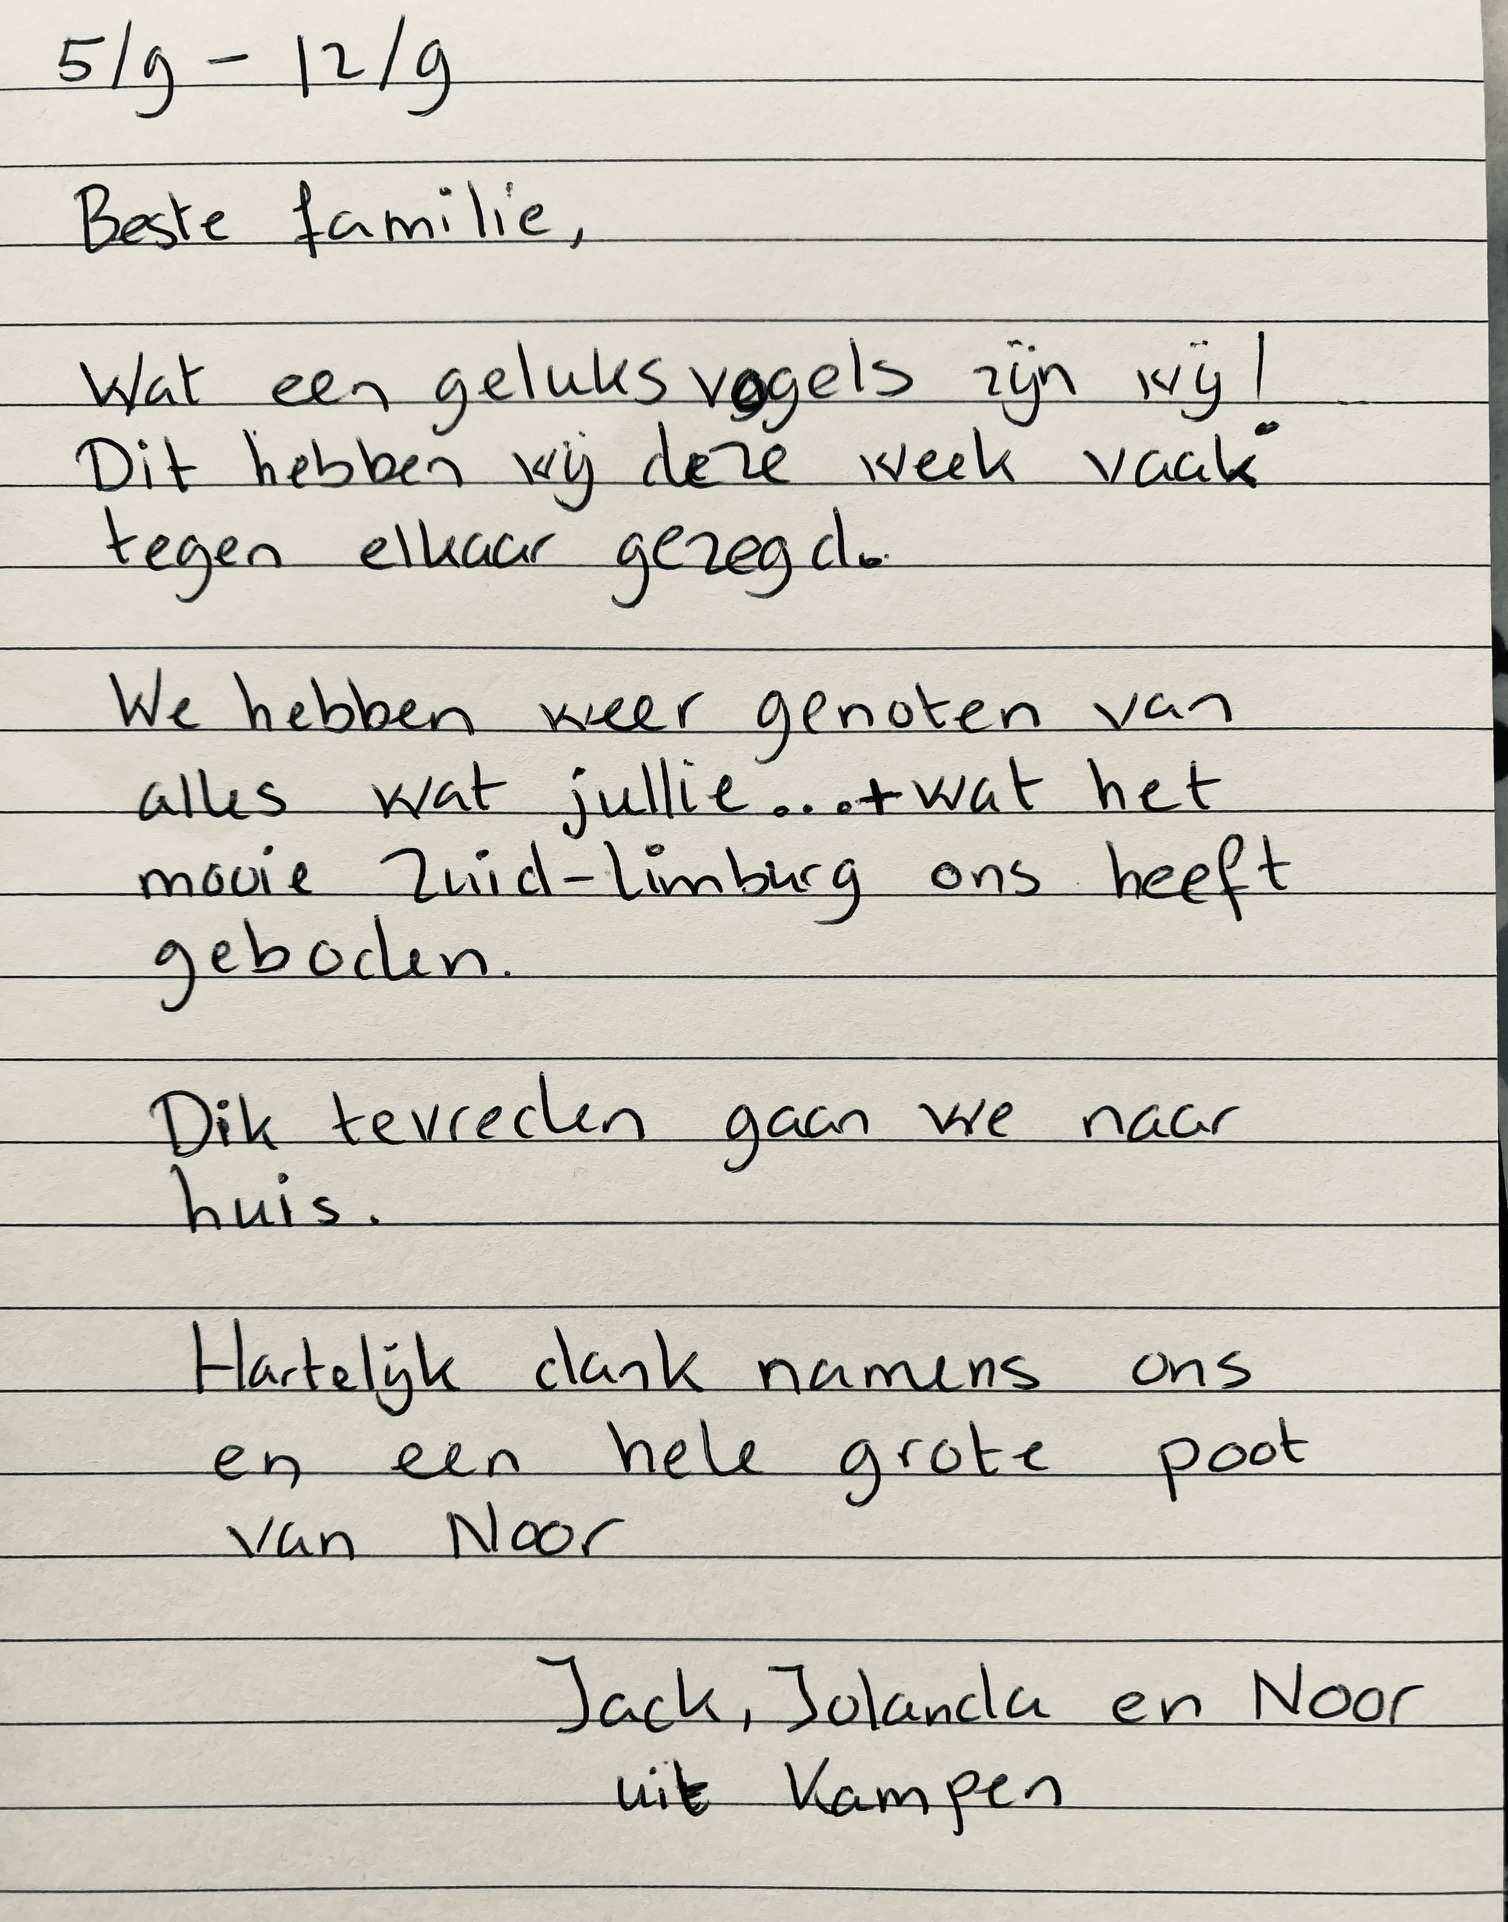 5/9 - 12/9
Beste familie,
Wat een geluksvogels zijn wij!
Dit hebben wij deze week vaak
tegen elkaar gezegd.
We hebben weer genoten van
alles wat jullie....+wat het
mooie Zuid-Limburg ons heeft
geboden.
Dik tevreden gaan we naar
huis.
Hartelijk dank namens ons
en een hele grote poot
van Noor
Jack, Jolanda en Noor
uit Kampen